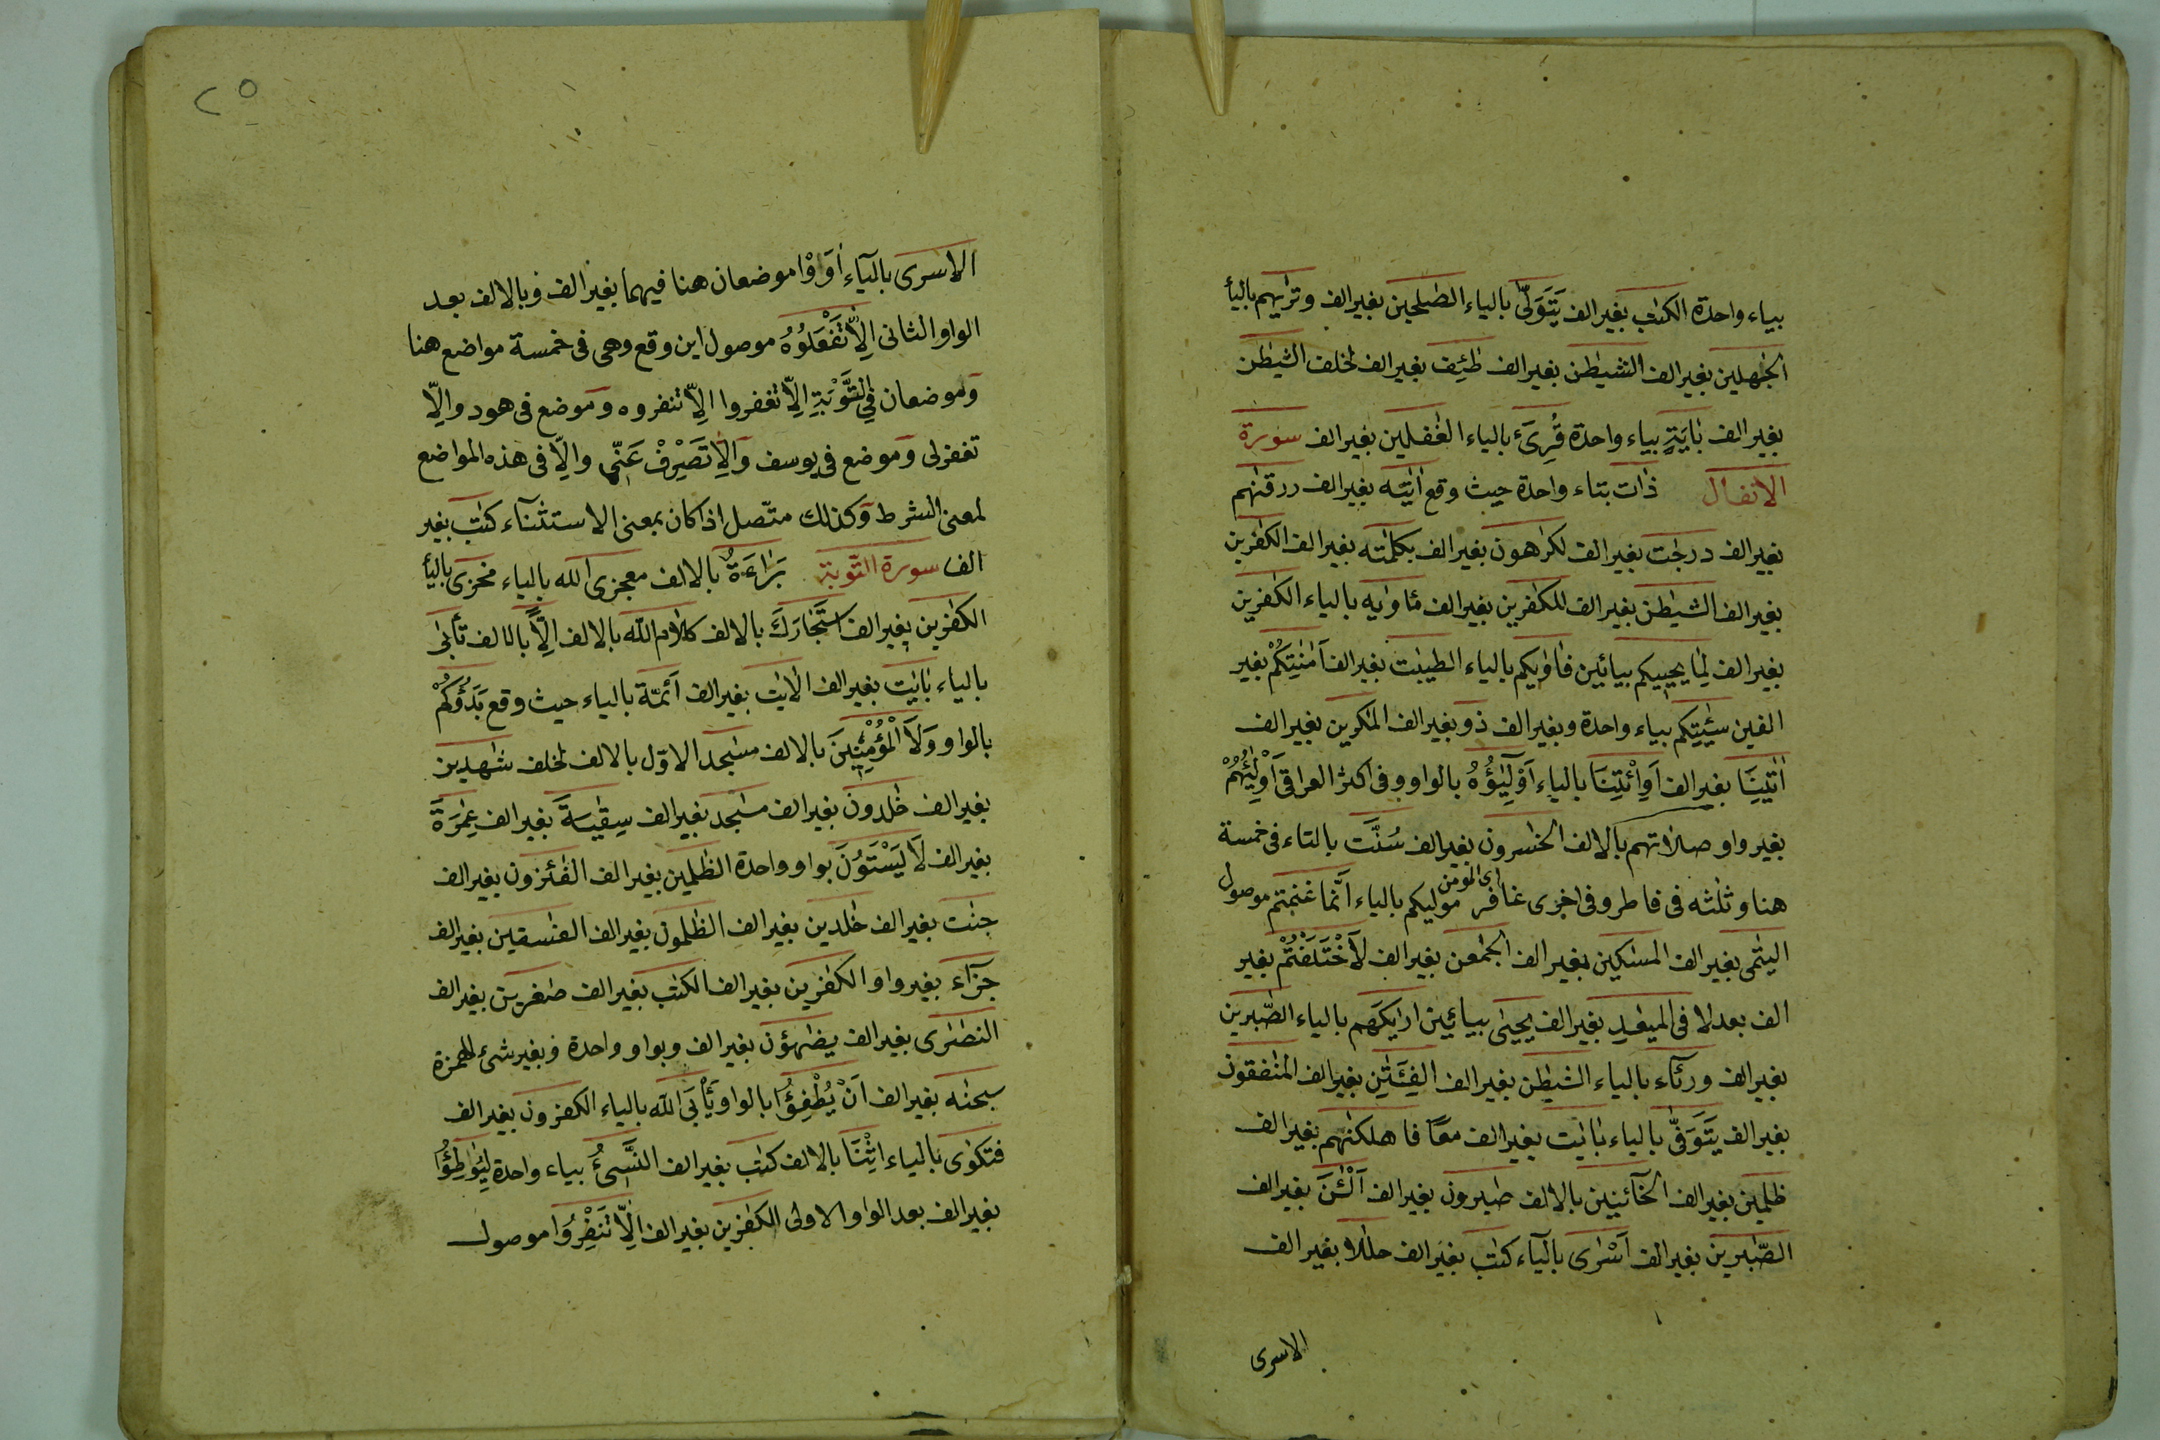 بياء واحدة الكتٰب بغير الف يَتَوَلّى بالياء الصٰلحين بغير الف وترٰيهم بالياء
الجٰهلين بغير الف الشيطٰن بغير الف طٰئِف بغير الف لخلف الشيطٰن
بغير الف بٰايَةٍ بياء واحدة قُرِئَ بالياء الغٰفلين بغير الف سورة
الانفال ذات بتاء واحدة حيث وقع اٰيٰتُه بغير الف رزقنٰهم
بغير الف درجٰت بغير الف لكٰرهون بغير الف بكلمٰته بغير الف الكٰفرين
بغير الف الشيطٰن بغير الف للكٰفرين بغير الف مٔاوٰيه بالياء الكٰفرين
بغير الف لِمَا يحييكم بيائين فاوٰيكم بالياء الطيبٰت بغير الف اَمٰنٰتِكُمْ بغير
الفين سَيِّئٰتِكم بياء واحدة وبغير الف ذو بغير الف المٰكرين بغير الف
اٰيٰتِنَا بغير الف اَوِائْتِنَا بالياء اَوْلِيَٰؤُهُ بالواو وفى اكثر العراقى اَوْلِيٰئُهُمْ
بغير واو صلاتهم بالالف الخٰسرون بغير الف سُنَّت بالتاء فى خمسة
هنا وثلٰثه فى فاطر وفى اخرى غافر اى المؤمن موليكم بالياء اَنَّمَا غنمتم موصول
اليتٰمى بغير الف المسٰكين بغير الف الجمعٰن بغير الف لَاخْتَلَفْتُمْ بغير
الف بعد لا فى الميعٰدِ بغير الف يحيٰى بيائين ارٰيكَهم بالياء الصّٰبرين
بغير الف ورِئٓاء بالياء الشيطٰن بغير الف الفِئَتٰنِ بغير الف المنٰفقون
بغير الف يَتَوَفَّى بالياء بٰايٰت بغير الف معًا فاهلكنٰهم بغير الف
ظٰلمين بغير الف الخآئنين بالالف صٰبرون بغير الف اَلْـٰٔنَ بغير الف
الصّٰبرين بغير الف اَسْرٰى بالياء كتٰب بغير الف حلٰلا بغير الف
الاسرى
٢٥
الاسرى بالياء اٰوَوْا موضعان هنا فيهما بغير الف وبالالف بعد
الواو الثانى اِلَّا تَفْعَلُوُهُ موصول اين وقع وهى فى خمسة مواضع هنا
وموضعان فِى التَّوْبَةِ اِلّا تغفروا اِلّا تنفروه وموضع فى هود واِلّا
تغفرلى وموضع فى يوسف وَاِلَّا تَصْرِفْ عَنِّى والّا فى هذه المواضع
لمعنى الشرط وكذلك متّصل اذا كان بمعنى الاستثنآء كتٰب بغير
الف سورة التوبة بَرَاءَةٌ بالالف معجزى الله بالياء مخزى بالياء
الكٰفرين بغير الف اسْتَجَارَكَ بالالف كلام اللّه بالالف اِلًّا بالالف تأبٰى
بالياء بٰايٰت بغير الف الاٰيٰت بغير الف اَئمّة بالياء حيث وقع بَدَؤُكُمْ
بالواو وَلَا الْمُؤْمِنِينَ بالالف مسٰجد الاوّل بالالف لخلف شٰهدين
بغير الف خٰلدون بغير الف مسٰجد بغير الف سِقٰيَةَ بغير الف عِمٰرَةَ
بغير الف لَا يَسْتَوُنَ بواو واحدة الظٰلمين بغير الف الفٰئزون بغير الف
جنٰت بغير الف خٰلدين بغير الف الظٰلمون بغير الف الفٰسقين بغير الف
جزآء بغير واو الكٰفرين بغير الف الكتٰب بغير الف صٰغرين بغير الف
النصٰرى بغير الف يضٰهؤن بغير الف وبواو واحدة وبغير شئ للهمزة
سبحٰنه بغير الف اَنْ يُطْفِؤُا بالواو يَأْبَى اللّه بالياء الكٰفرون بغير الف
فتكوٰى بالياء اثْنَا بالالف كتٰب بغير الف النَّسِىُٔ بياء واحدة لِيُوٰاطِؤُا
بغير الف بعد الواو الاولى الكٰفرين بغير الف اِلّا تَنْفِرُوا موصول